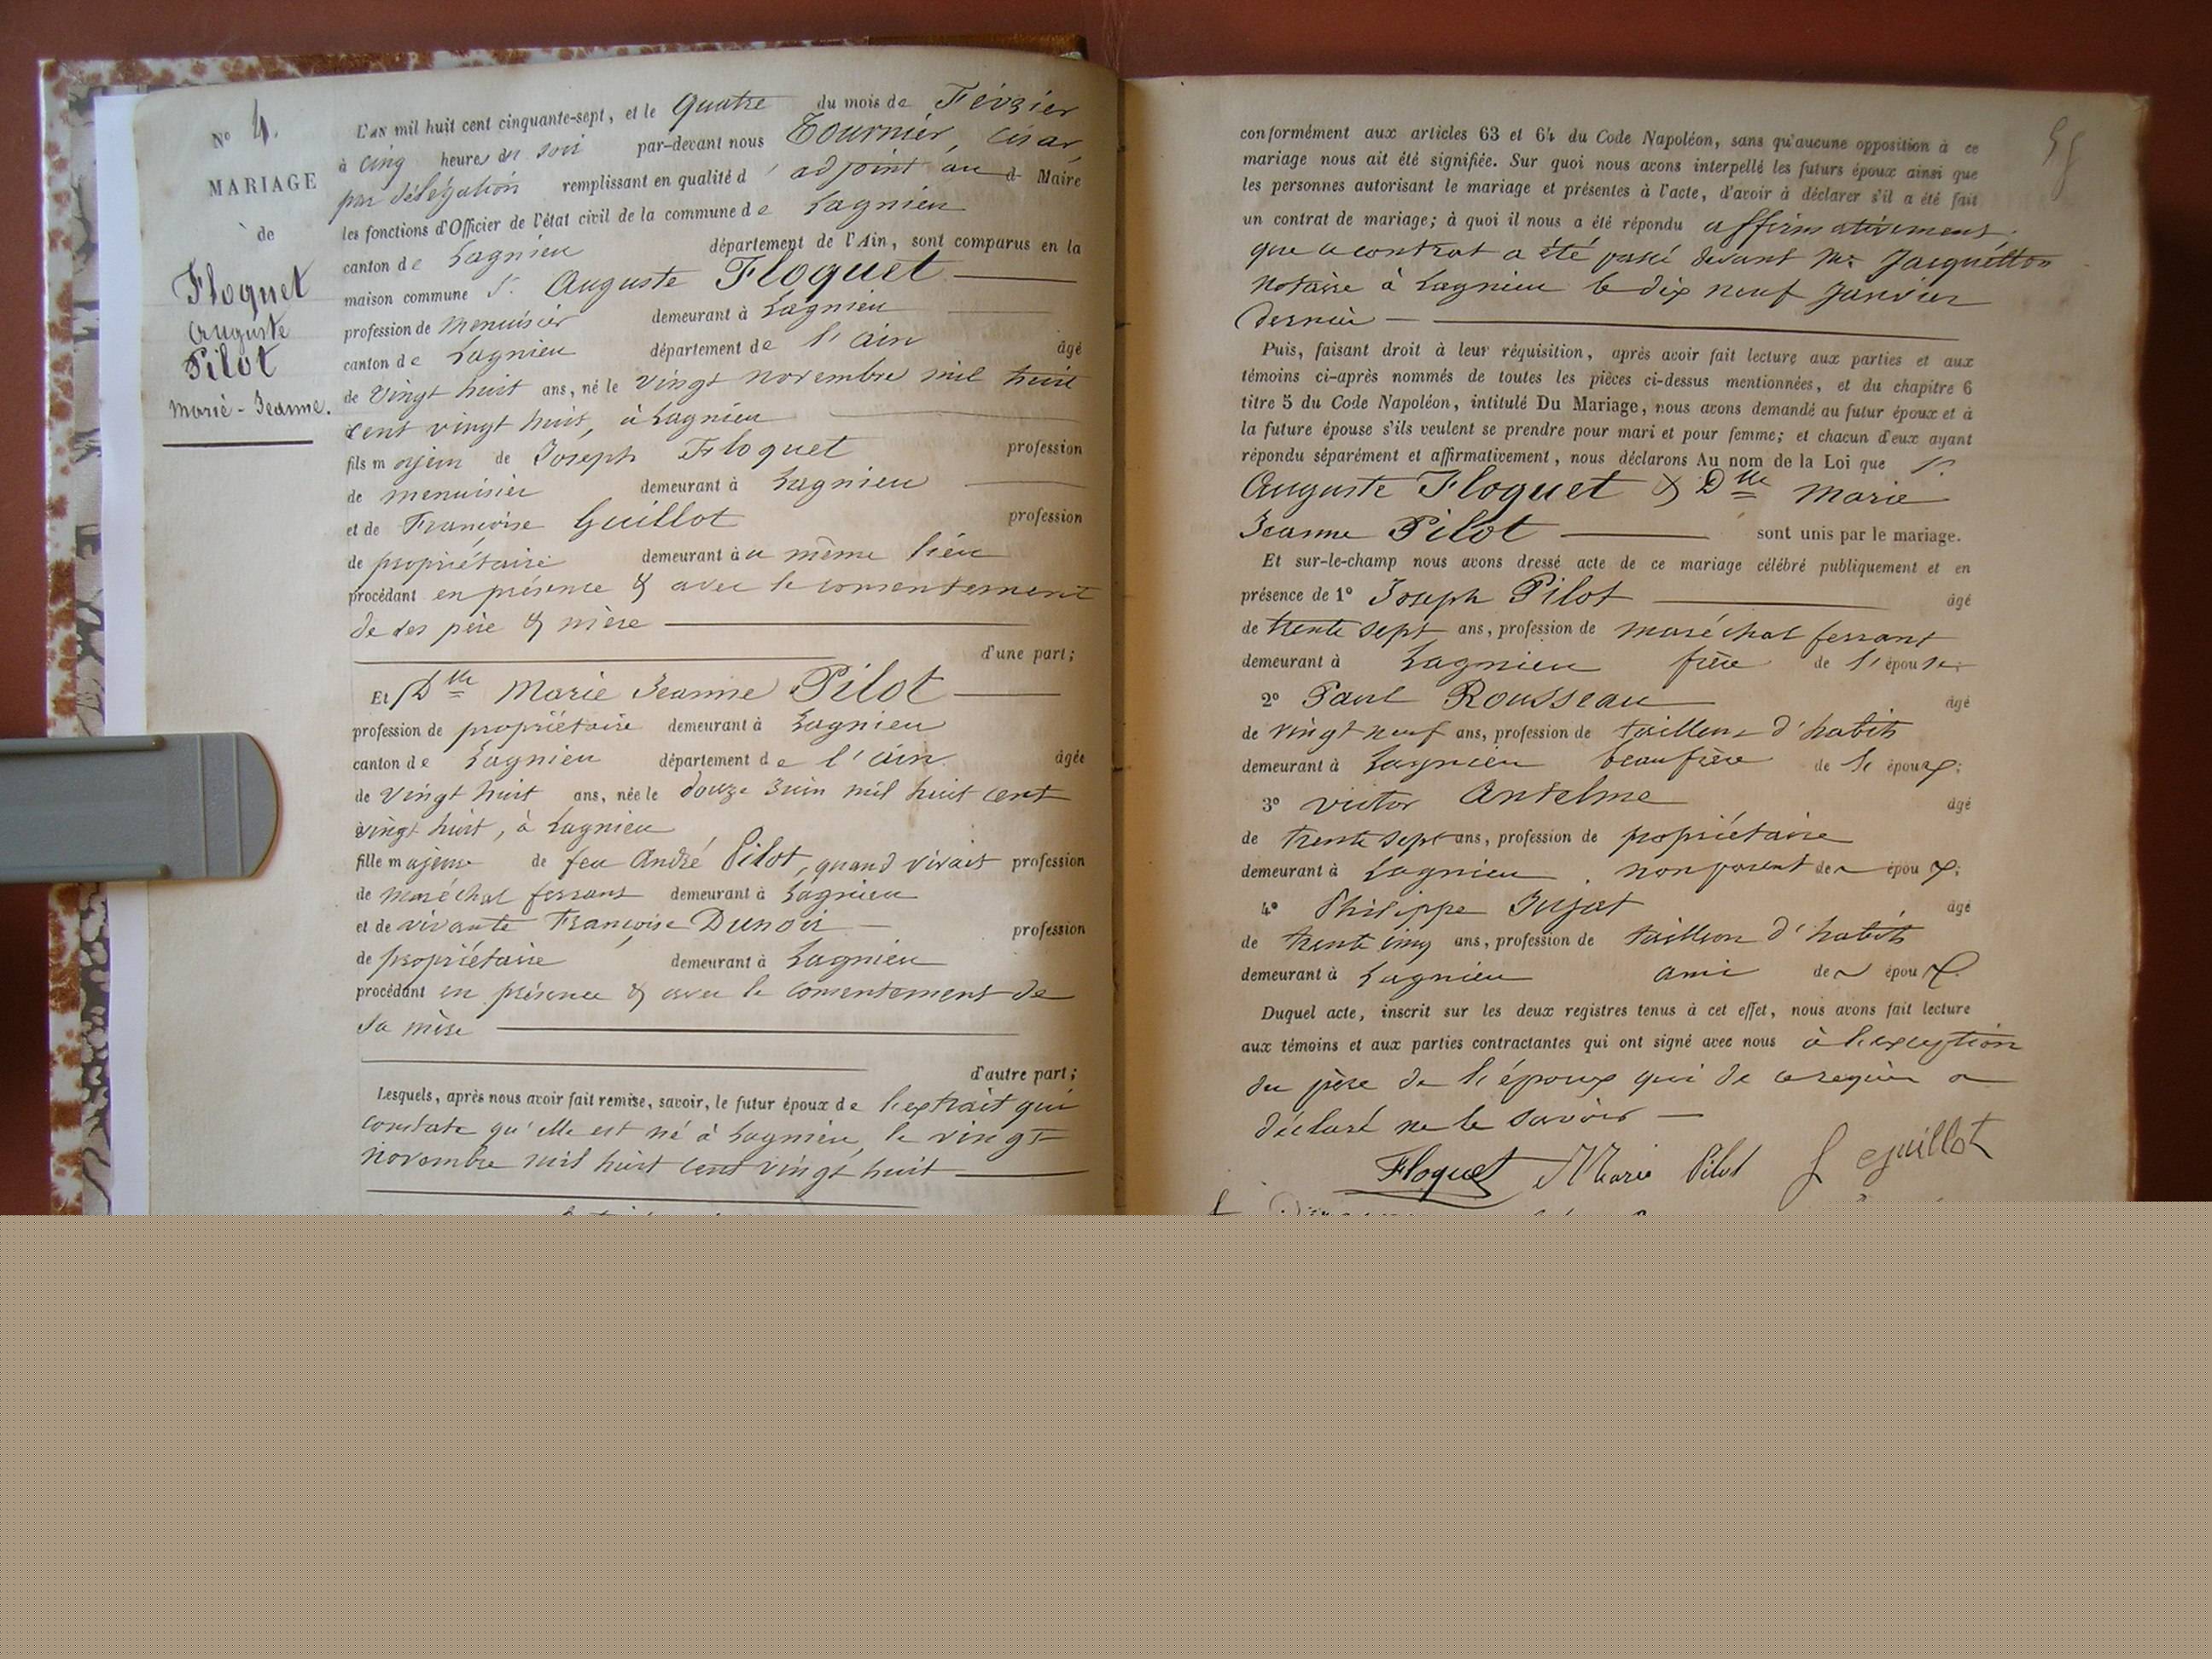 N° 4.
MARIAGE
de
Floquet
Auguste
Pilot
Marie-Jeanne.
L'an mil huit cent cinquante-sept, et le quatre du mois de Février
à cinq heures du soir par-devant nous Tournier, César,
par délégation remplissant en qualité d'adjoint au d Maire
les fonctions d'Officier de l'état civil de la commune de Lagnieu
canton de Lagnieu département de l'Ain, sont comparus en la
maison commune Sr. Auguste Floquet
profession de menuisier demeurant à Lagnieu
canton de Lagnieu département de l'ain âgé
de vingt huit ans, né le vingt novembre mil huit
cent vingt huit, à Lagnieu
fils majeur de Joseph Floquet profession
de menuisier demeurant à Lagnieu
et de Françoise Guillot profession
de propriétaire demeurant au même lieu
procédant en présence & avec le consentement
de ses père & mère
d'une part;
Et Dlle Marie Jeanne Pilot
profession de propriétaire demeurant à Lagnieu
canton de Lagnieu département de l'ain âgée
de vingt huit ans, née le douze Juin mil huit cent
vingt huit, à Lagnieu
fille majeure de feu André Pilot, quand vivait profession
de maréchal ferrant demeurant à Lagnieu
et de vivante Françoise Dunoir profession
de propriétaire demeurant à Lagnieu
procédant en présence & avec le consentement de
sa mère
d'autre part;
Lesquels, après nous avoir fait remise, savoir, le futur époux de l'extrait qui
constate qu'elle est né à Lagnieu, le vingt
novembre mil huit cent vingt huit
conformément aux articles 63 et 64 du Code Napoléon, sans qu'aucune opposition à ce
mariage nous ait été signifiée. Sur quoi nous avons interpellé les futurs époux ainsi que
les personnes autorisant le mariage et présentes à l'acte, d'avoir à déclarer s'il a été fait
un contrat de mariage; à quoi il nous a été répondu affirmativement,
que ce contrat a été passé devant Me Jacquetton
notaire à Lagnieu le dix neuf Janvier
dernier
Puis, faisant droit à leur réquisition, après avoir fait lecture aux parties et aux
témoins ci-après nommés de toutes les pièces ci-dessus mentionnées, et du chapitre 6
titre 5 du Code Napoléon, intitulé Du Mariage, nous avons demandé au futur époux et à
la future épouse s'ils veulent se prendre pour mari et pour femme; et chacun d'eux ayant
répondu séparément et affirmativement, nous déclarons Au nom de la Loi que Sr.
Auguste Floquet & Dlle Marie
Jeanne Pilot sont unis par le mariage.
Et sur-le-champ nous avons dressé acte de ce mariage célébré publiquement et en
présence de 1° Joseph Pilot âgé
de trente sept ans, profession de maréchal ferrant
demeurant à Lagnieu frère de l'épouse;
2° Paul Rousseau âgé
de vingt neuf ans, profession de tailleur d'habits
demeurant à Lagnieu beaufrère de l'époux;
3° Victor Antelme âgé
de trente sept ans, profession de propriétaire
demeurant à Lagnieu non parent de époux;
4° Philippe Jujat âgé
de trente cinq ans, profession de tailleur d'habits
demeurant à Lagnieu ami de époux.
Duquel acte, inscrit sur les deux registres tenus à cet effet, nous avons fait lecture
aux témoins et aux parties contractantes qui ont signé avec nous à l'exception
du père de l'époux qui de ce requis a
déclaré ne le savoir
Floquet Marie Pilot f guillot